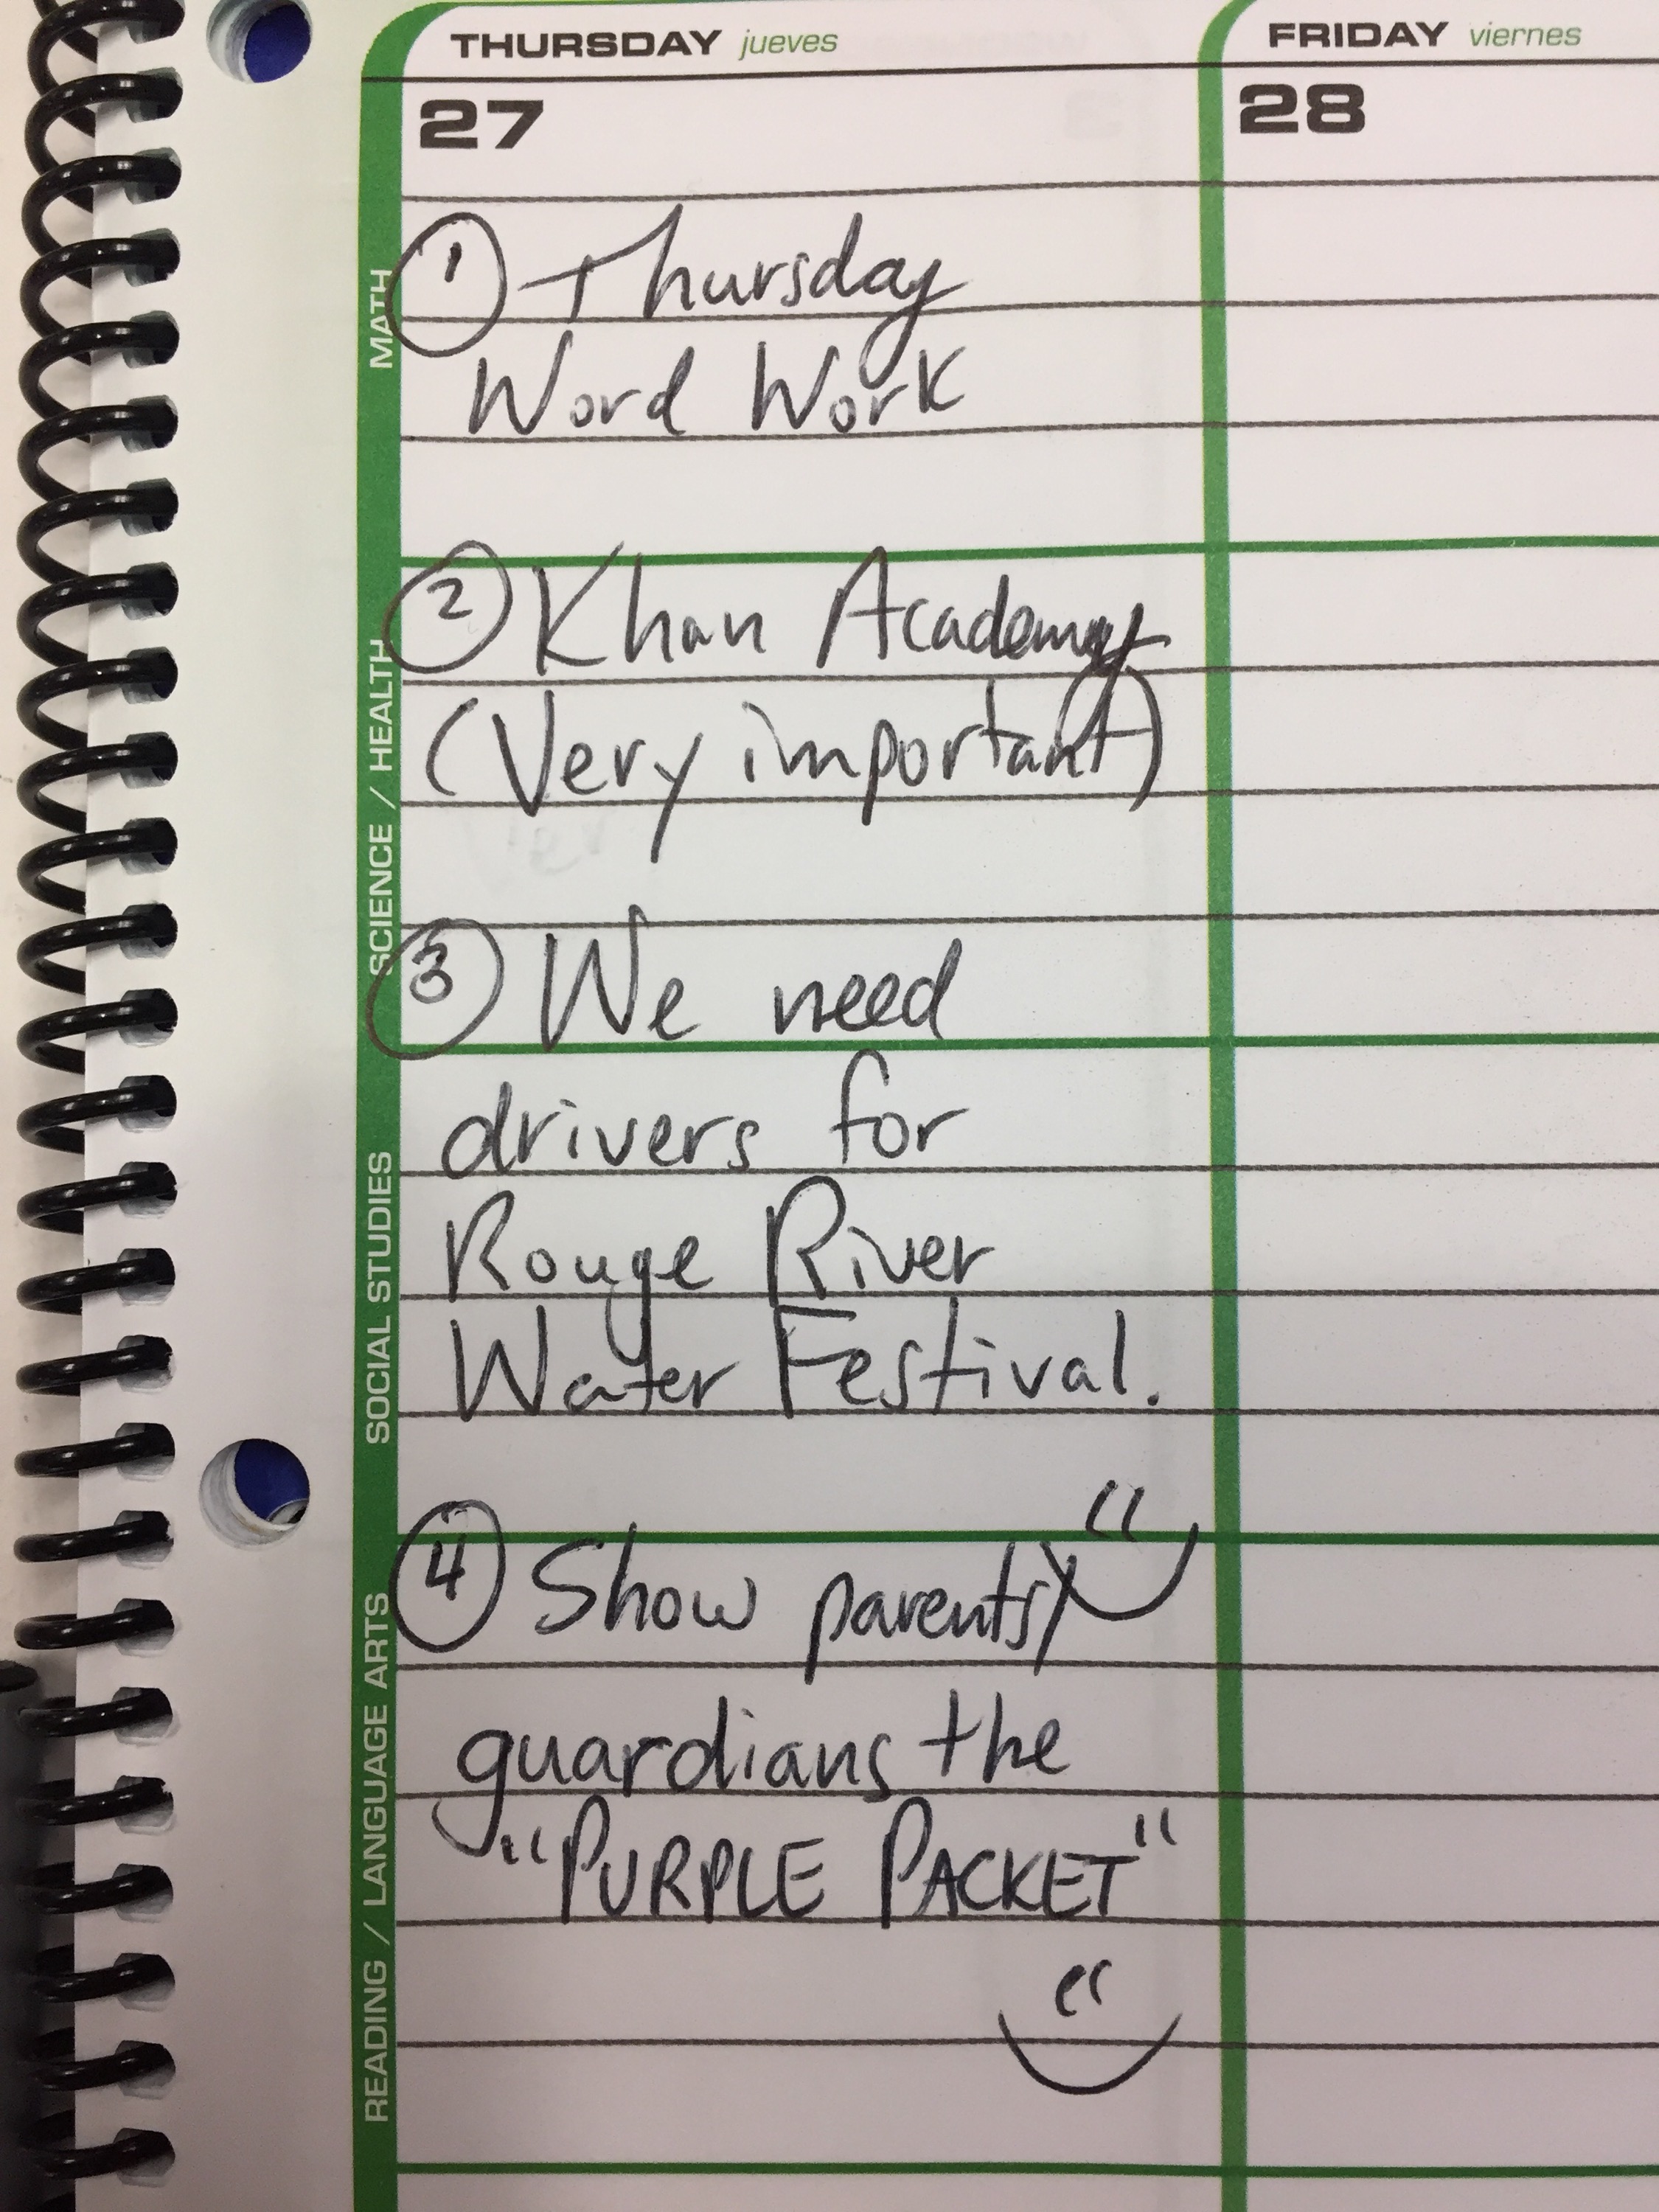 THURSDAY jueves
FRIDAY viernes
27
28
MATH
① Thursday
Word Work
SCIENCE / HEALTH
② Khan Academy
(Very important)
③ We need
SOCIAL STUDIES
drivers for
Rouge River
Water Festival.
READING / LANGUAGE ARTS
④ Show parents/
guardians the
"PURPLE PACKET"